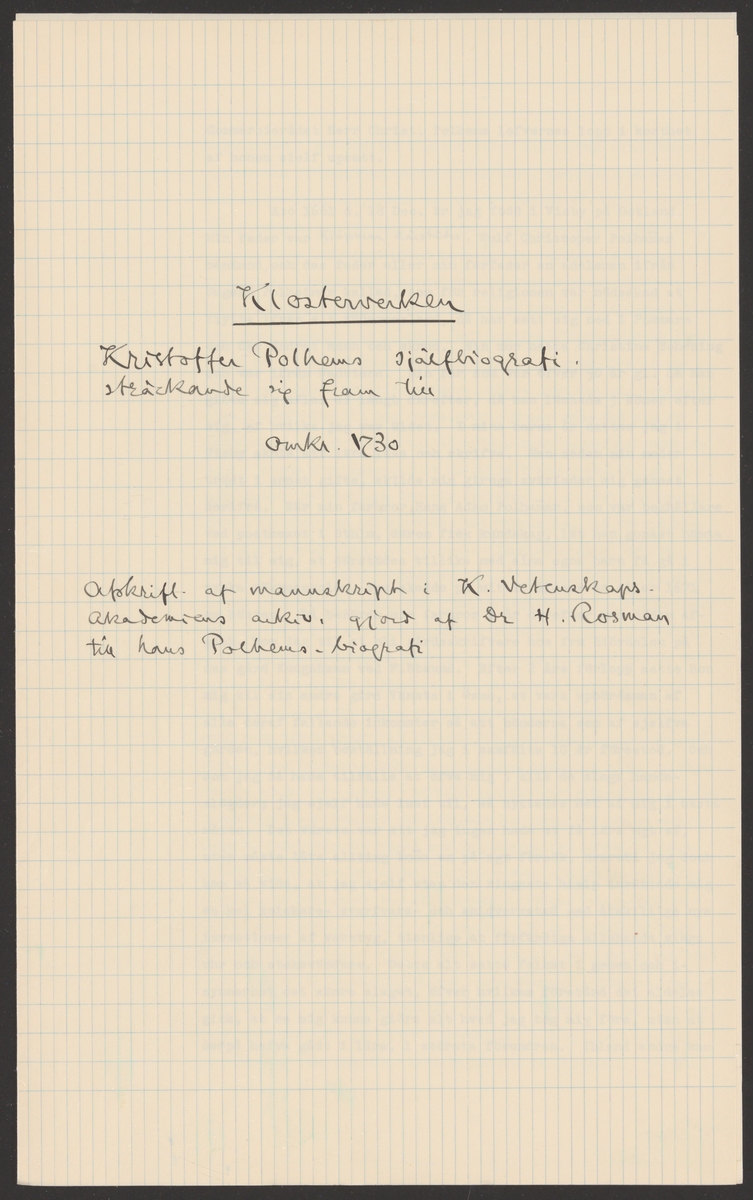 Klosterverken
Kristoffer Polhems självbiografi.
sträckande sig fram till
omkr. 1730
Afskrift af manuskript i K. Vetenskaps-
akademiens arkiv, gjord af Dr H. Rosman
till hans Polhems-biografi